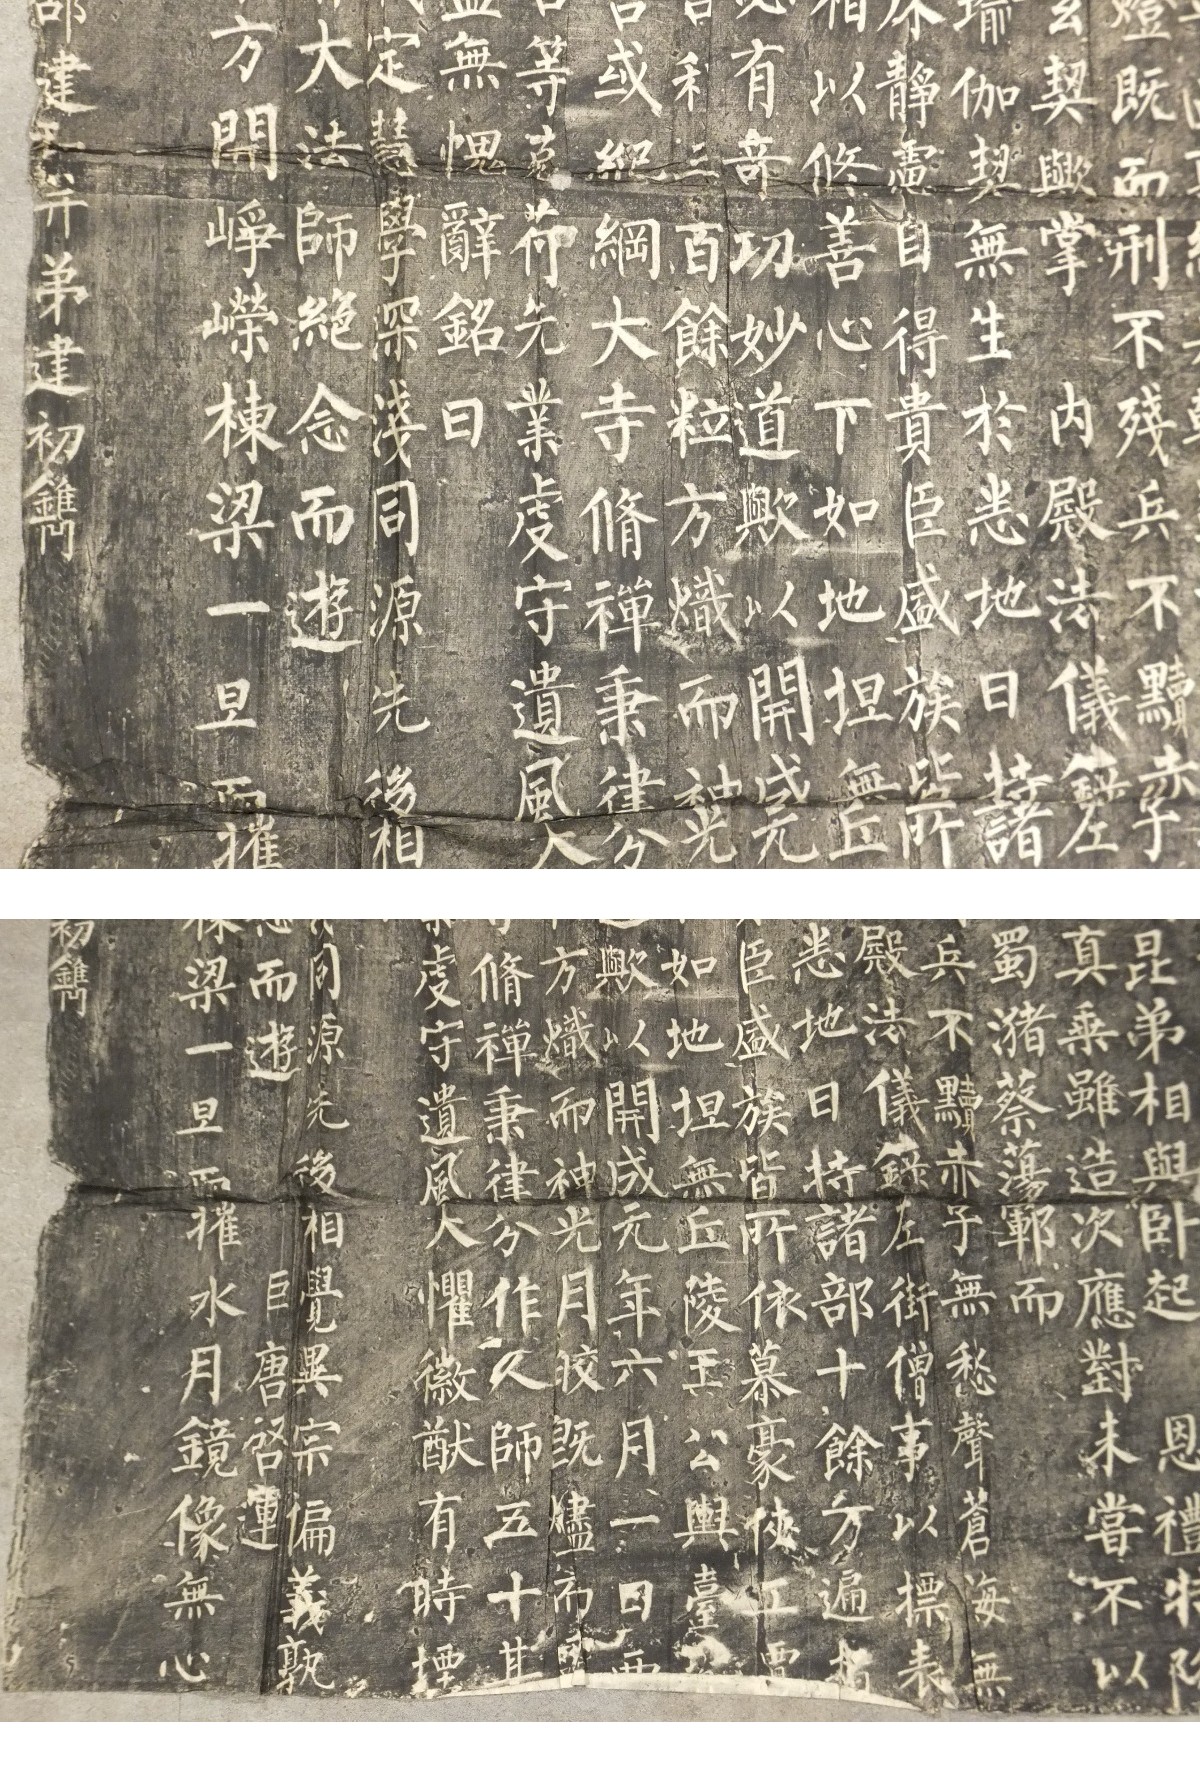 燈既而刑不殘兵不黷赤子
玄契歟掌內殿法儀錄左
瑜伽契無生於悉地日持諸
床靜慮自得貴臣盛族皆所
相以修善心下如地坦無丘
必有奇功妙道歟以開成元
舍利三百餘粒方熾而神光
言或綱大寺脩禪秉律分
等克荷先業虔守遺風大
無愧辭銘曰
定慧學深淺同源先後相
大法師絕念而遊
方開崢嶸棟梁一旦而摧
邵建和并弟建初鐫
昆弟相與臥起恩禮特隆
真乘雖造次應對未嘗不以
蜀瀦蔡蕩鄆而
兵不黷赤子無愁聲蒼海無
殿法儀錄左街僧事以標表
悉地日持諸部十餘万遍指
臣盛族皆所依慕豪俠工賈
如地坦無丘陵王公輿臺
歟以開成元年六月一日西
方熾而神光月皎既燼而靈
脩禪秉律分作人師五十其
虔守遺風大懼徽猷有時堙
同源先後相覺異宗偏義孰
念而遊巨唐啓運
棟梁一旦而摧水月鏡像無心
初鐫